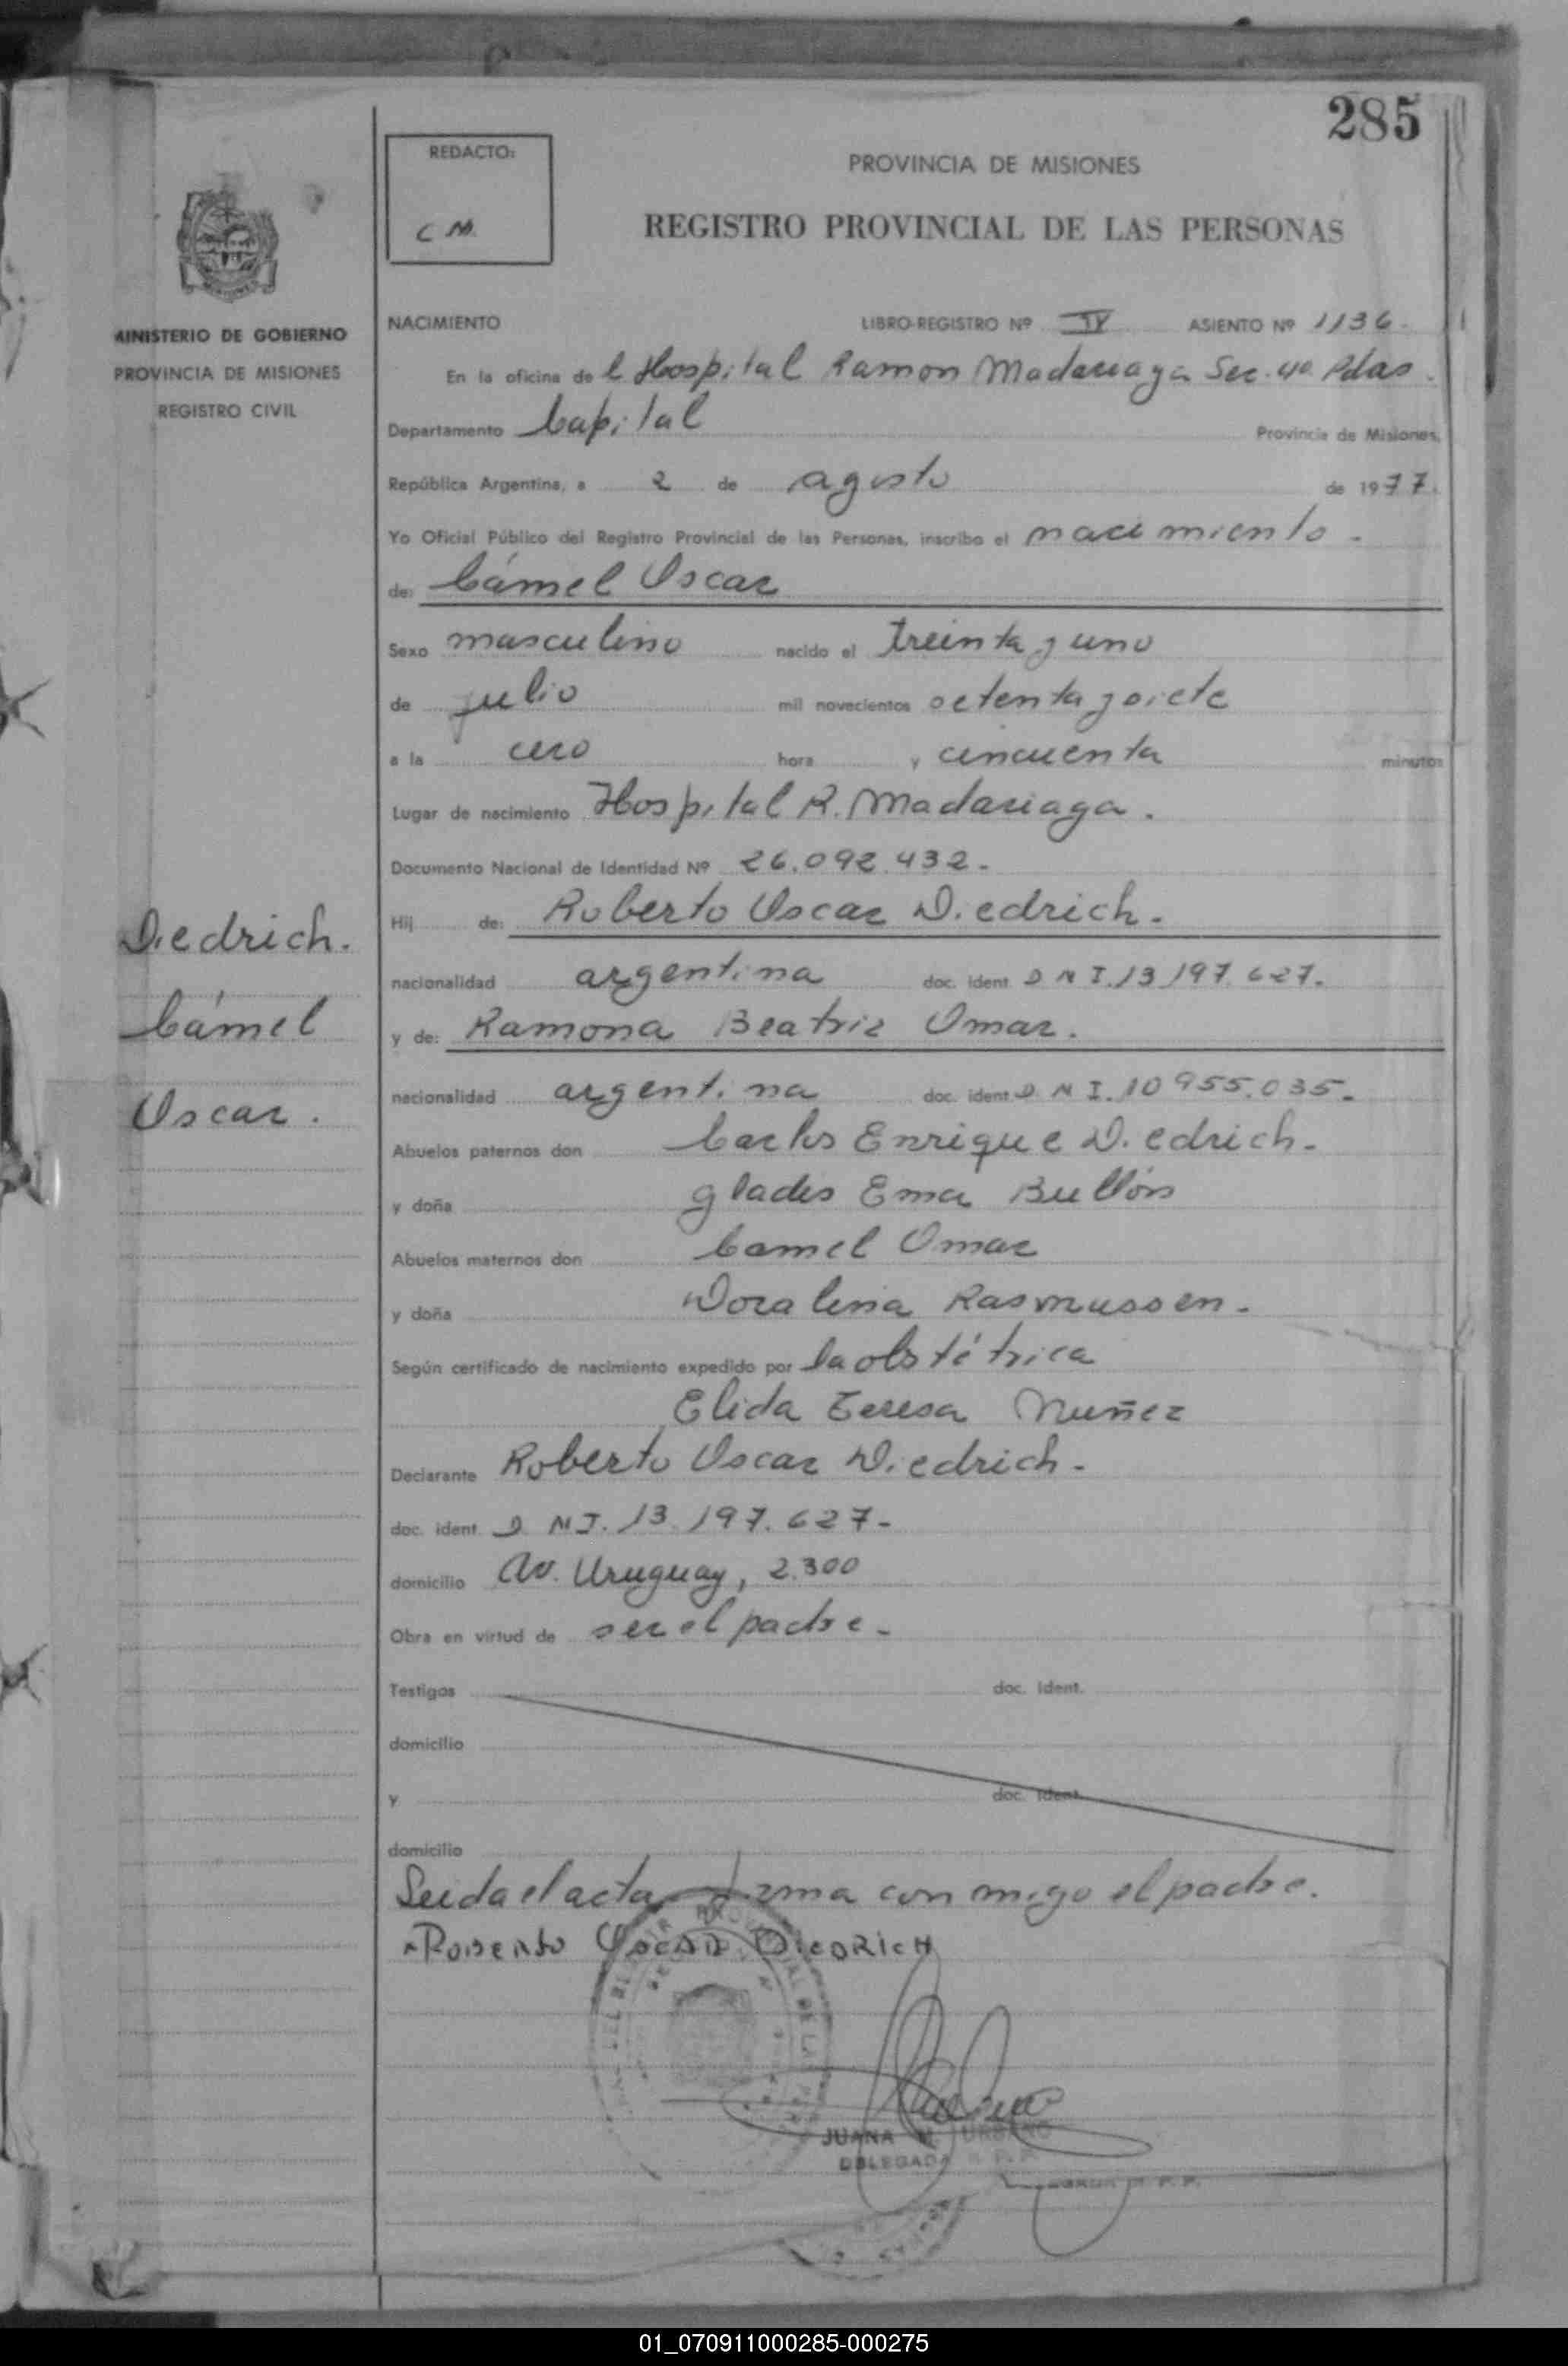 285
REDACTO:
C M.
PROVINCIA DE MISIONES
REGISTRO PROVINCIAL DE LAS PERSONAS
MINISTERIO DE GOBIERNO
PROVINCIA DE MISIONES
REGISTRO CIVIL
NACIMIENTO LIBRO-REGISTRO Nº IV ASIENTO Nº 1136.
En la oficina de l Hospital Ramon Madariaga Sec. 4a. Pdas.
Departamento Capital Provincia de Misiones,
República Argentina, a 2 de agosto de 1977.
Yo Oficial Público del Registro Provincial de las Personas, inscribo el nacimiento.
de: Cámel Oscar
Sexo masculino nacido el treinta y uno
de julio mil novecientos setenta y siete
a la cero hora y cincuenta minutos
Lugar de nacimiento Hospital R. Madariaga.
Documento Nacional de Identidad Nº 26.092.432.-
Hij de: Roberto Oscar Diedrich.-
nacionalidad argentina doc. ident. D N I. 13.197.627.
y de: Ramona Beatriz Omar.
nacionalidad argentina doc. ident. D. N I. 10 955.035.-
Diedrich.
Cámel
Oscar.
Abuelos paternos don Carlos Enrique Diedrich.-
y doña Gladis Ema Bullón
Abuelos maternos don Camel Omar
y doña Doralina Rasmussen.-
Según certificado de nacimiento expedido por la obstétrica
Elida Teresa Nuñez
Declarante Roberto Oscar Diedrich.-
doc. ident. D. N I. 13.197.627.-
domicilio Av. Uruguay, 2.300
Obra en virtud de ser el padre.-
Testigos doc. ident.
domicilio
y doc. ident.
domicilio
Leida el acta firma con migo el padre.
Roberto Oscar Diedrich
JUANA M. URBANO
DELEGADA R. P. P.
01_070911000285-000275